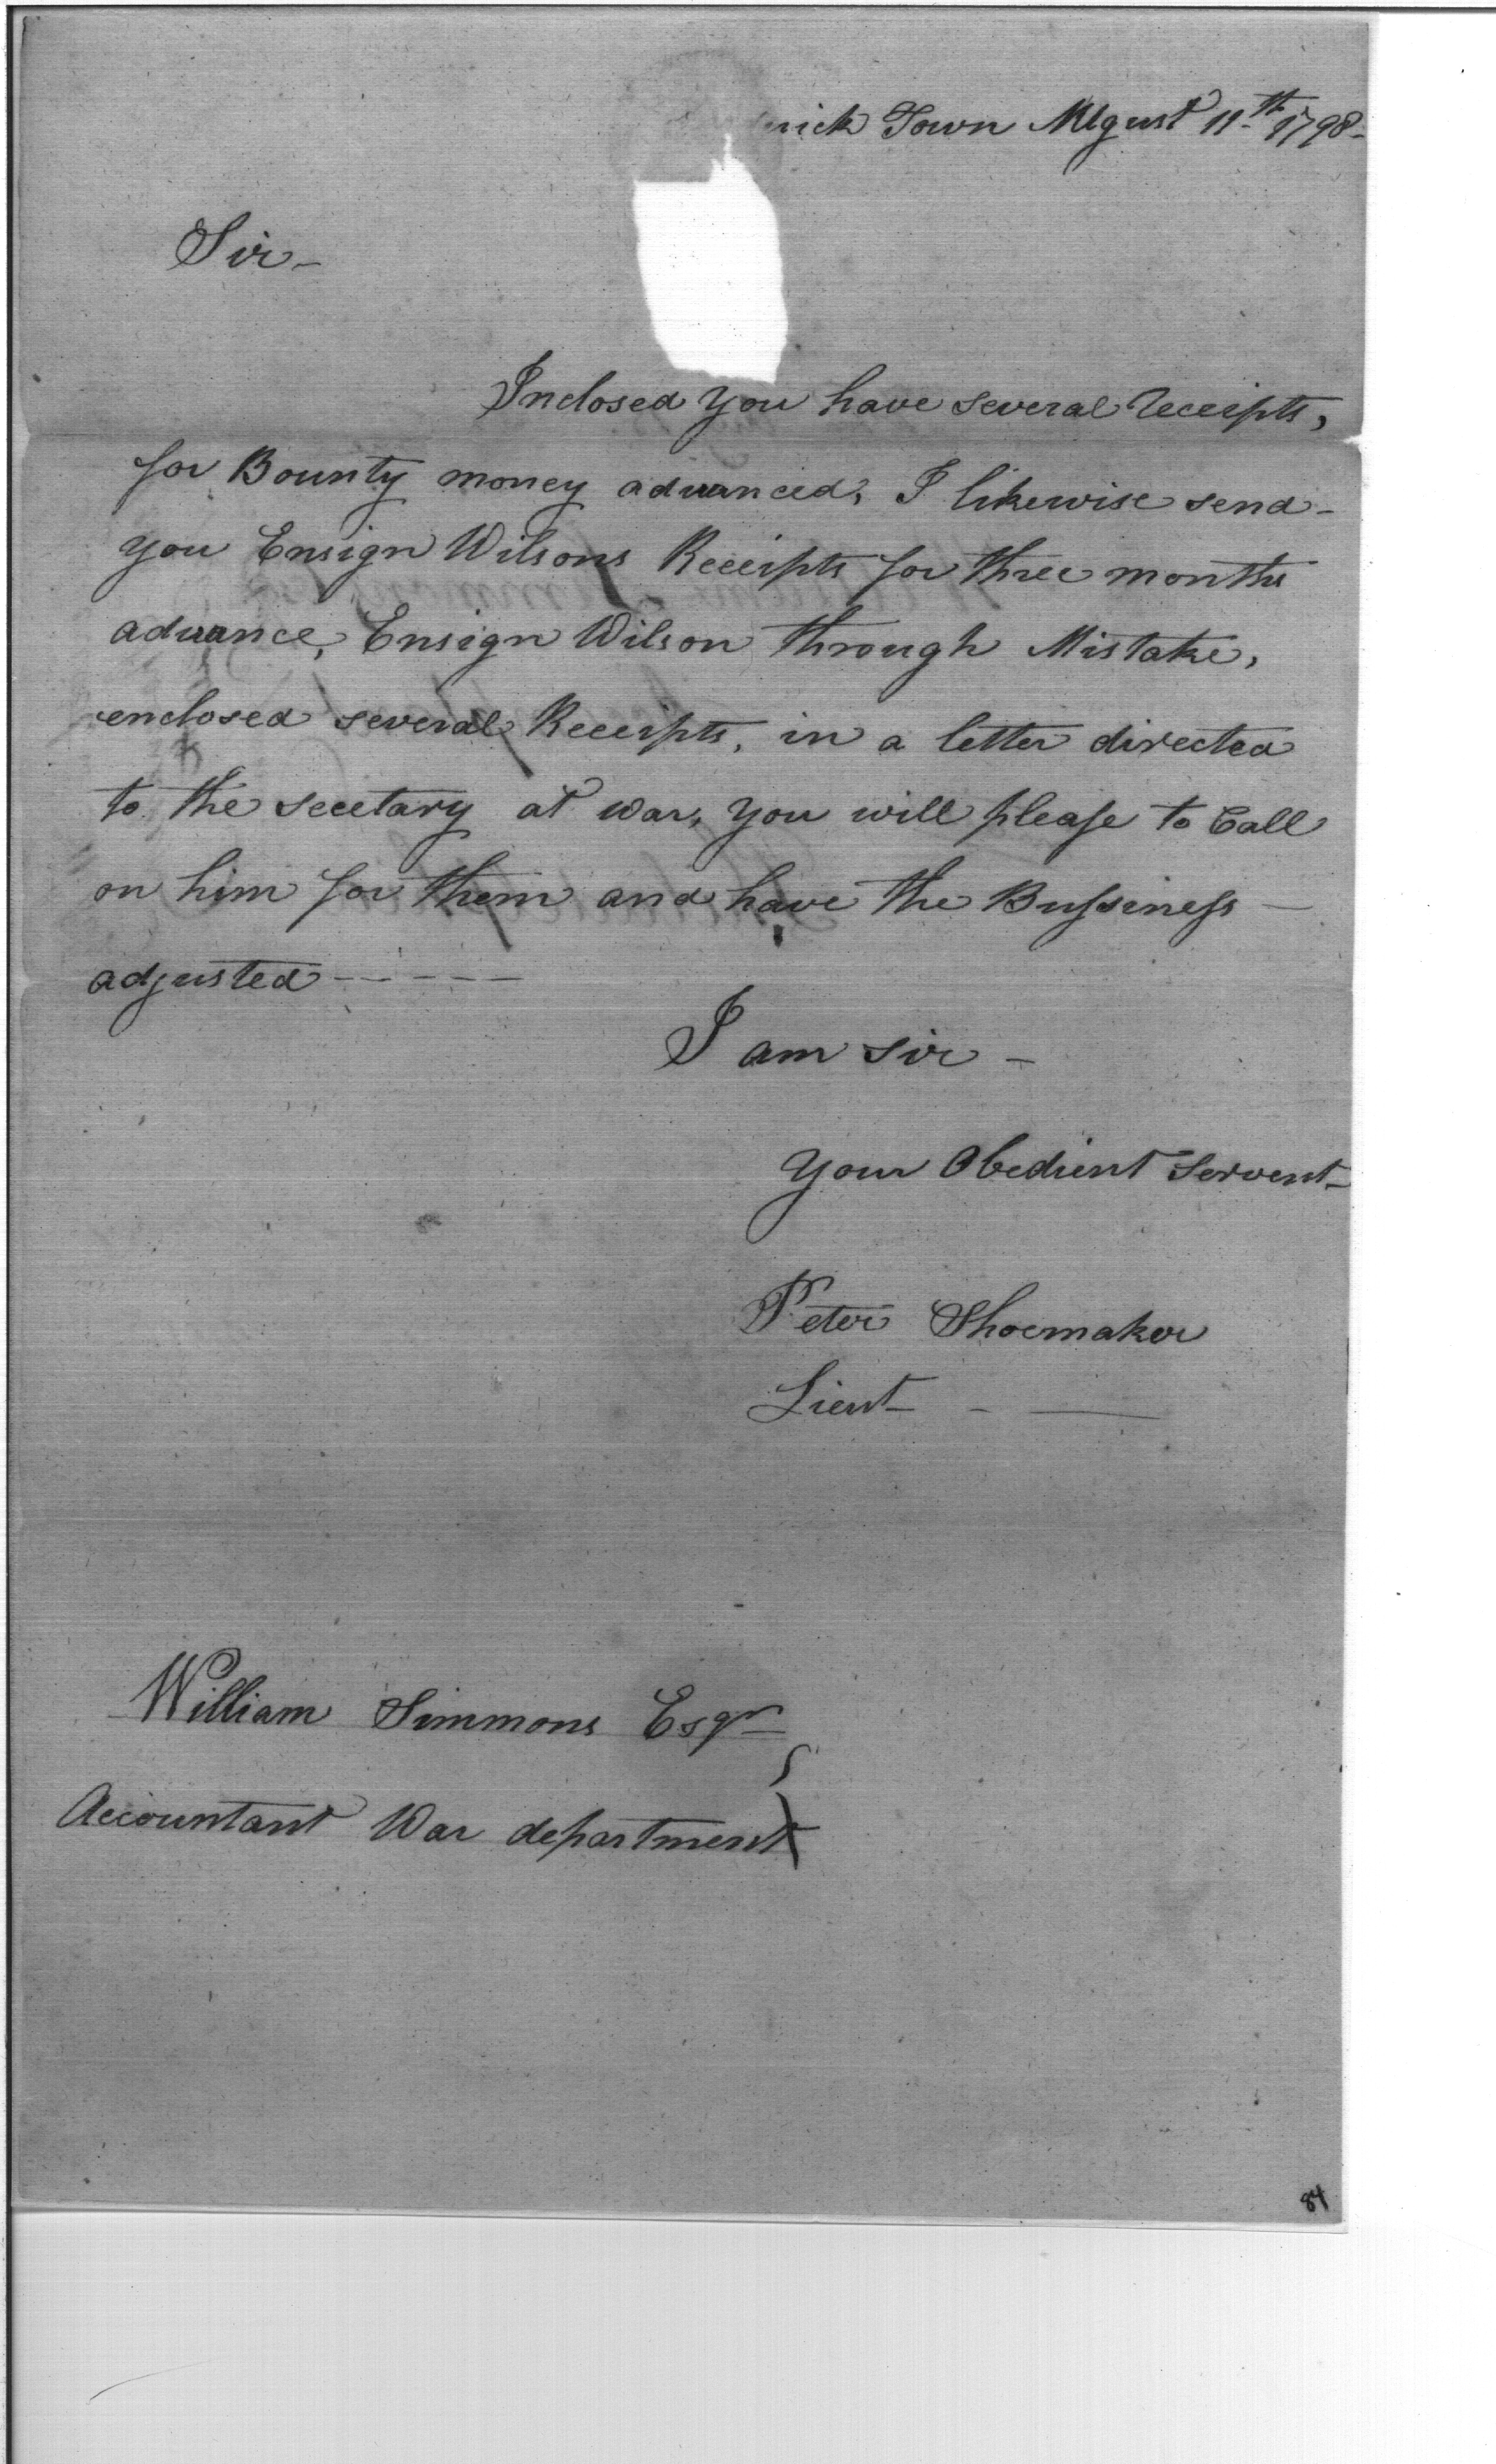 rick Town Augst 11th 1798-
Sir-
Inclosed you have several Receipts,
for Bounty money advanced, I likewise send-
you Ensign Wilsons Receipts for three months
advance, Ensign Wilson through Mistake,
enclosed several Receipts, in a letter directed
to the secetary at war, you will please to Call
on him for them and have the Bussiness-
adjusted-----
I am sir-
your Obedient Servent-
Peter Shoemaker
Lieut- - —
William Simmons Esqr
Accountant War department
84